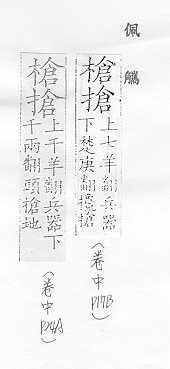 佩觿
槍搶
上七羊翻兵器
下楚庚翻攙搶
(卷中P17B)
槍搶
上千羊翻兵器下
千兩翻頭搶地
(卷中P24A)